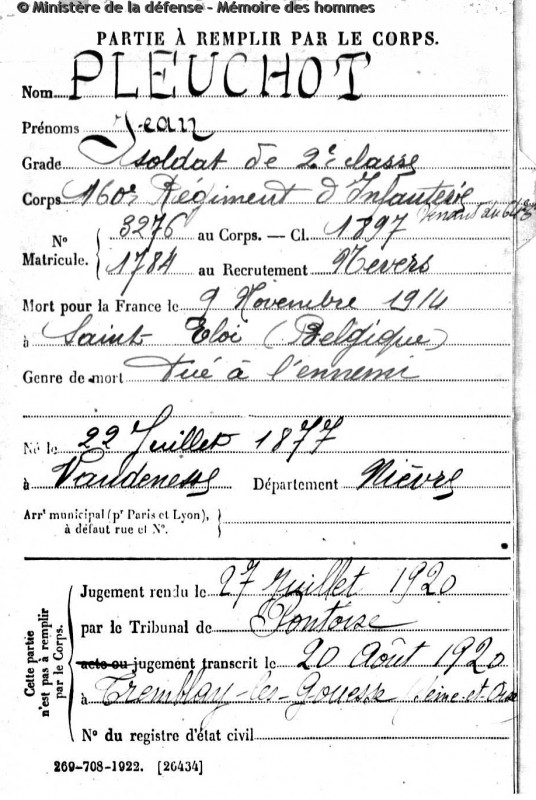 © Ministère de la défense - Mémoire des hommes
PARTIE À REMPLIR PAR LE CORPS.
Nom PLEUCHOT
Prénoms Jean
Grade soldat de 2e classe
Corps 160e Régiment d'Infanterie venant du
N° Matricule. { 3276 au Corps. — Cl. 1897
1784 au Recrutement Nevers
Mort pour la France le 9 Novembre 1914
à Saint Eloi (Belgique)
Genre de mort Tué à l'ennemi
Né le 22 Juillet 1877
à Vandenesse Département Nièvre
Arrt municipal (pr Paris et Lyon),
à défaut rue et N°.
Cette partie n'est pas à remplir par le Corps.
Jugement rendu le 27 Juillet 1920
par le Tribunal de Pontoise
acte ou jugement transcrit le 20 Août 1920
à Tremblay-les-Gonesse (Seine et Oise
N° du registre d'état civil
269-708-1922. [26434]